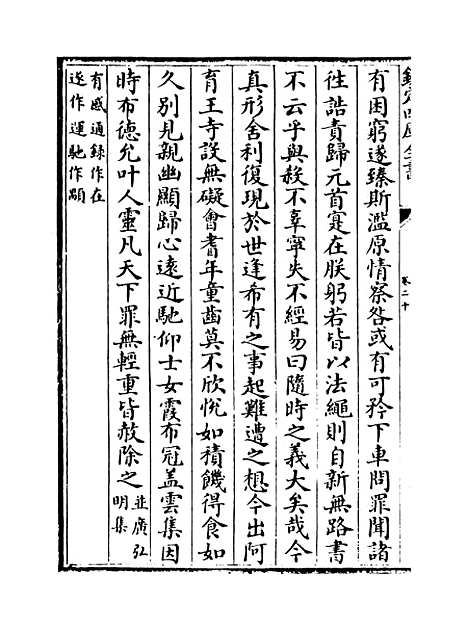 欽定四庫全書
卷二十
有困窮遂臻斯濫原情察咎或有可矜下車問罪聞諸
徃誥責歸元首寔在朕躬若皆以法繩則自新無路書
不云乎與殺不辜寧失不經易曰隨時之義大矣哉今
真形舍利復現於世逢希有之事起難遭之想今出阿
育王寺設無礙會耆年童齒莫不欣悅如積饑得食如
久別見親幽顯歸心遠近馳仰士女霞布冠盖雲集因
時布德允叶人靈凡天下罪無輕重皆赦除之並廣弘
明集
有感通録作在
遂作運馳作顒